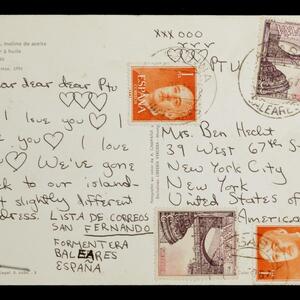 xxx 000
molino de aceite
à huile
ar dear dear Ptu
♡♡♡♡
I love you ♡ I
ve you ♡ I love
ou ♡♡ We've gone
ck to our island-
t slightly different
dress. LISTA DE CORREOS
SAN FERNANDO
FORMENTERA
BALEARES
ESPAÑA
♡♡♡♡
PTU
1
ESPAÑA
CORREOS
BALEARES
Mrs. Ben Hecht
39 West 67th St
New York City
New York
United States of
America